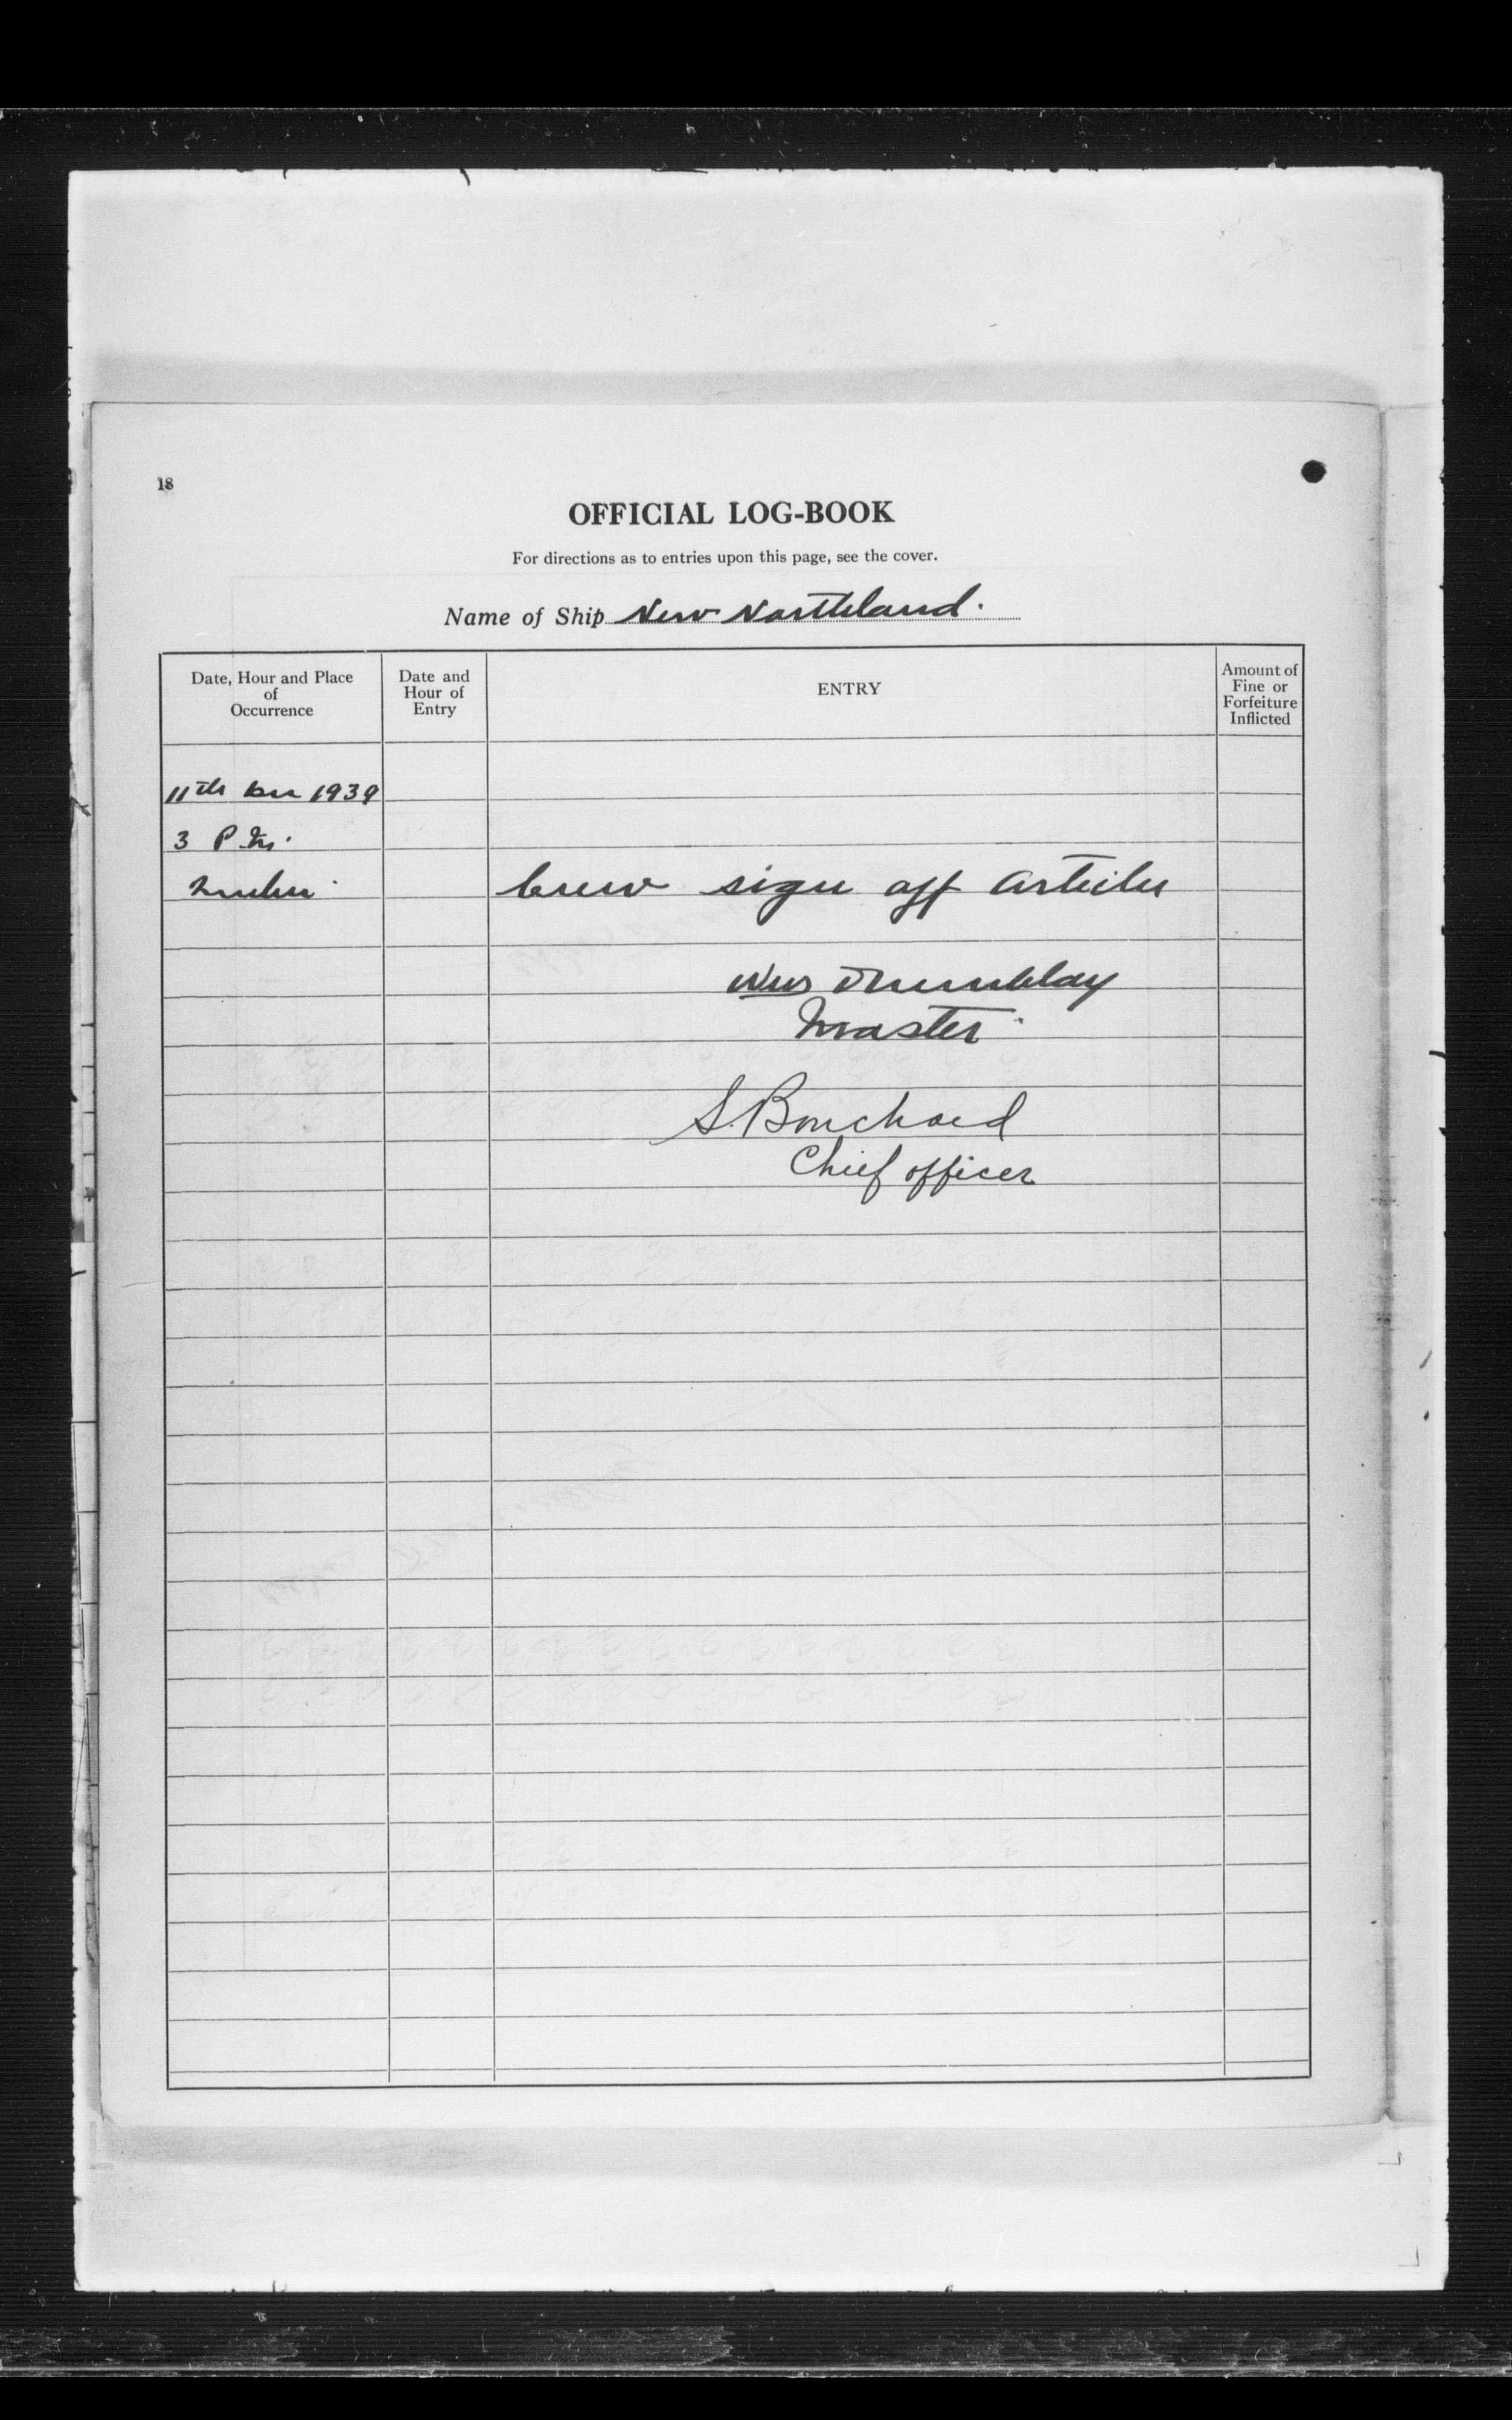 18
OFFICIAL LOG-BOOK
For directions as to entries upon this page, see the cover.
Name of Ship New Northland.
Date, Hour and Place
of
Occurrence
Date and
Hour of
Entry
ENTRY
Amount of
Fine or
Forfeiture
Inflicted
11th Dec 1939
3 P.M.
Quebec
Crew sign off Articles
Wm Tremblay
Master
S. Bouchard
Chief officer